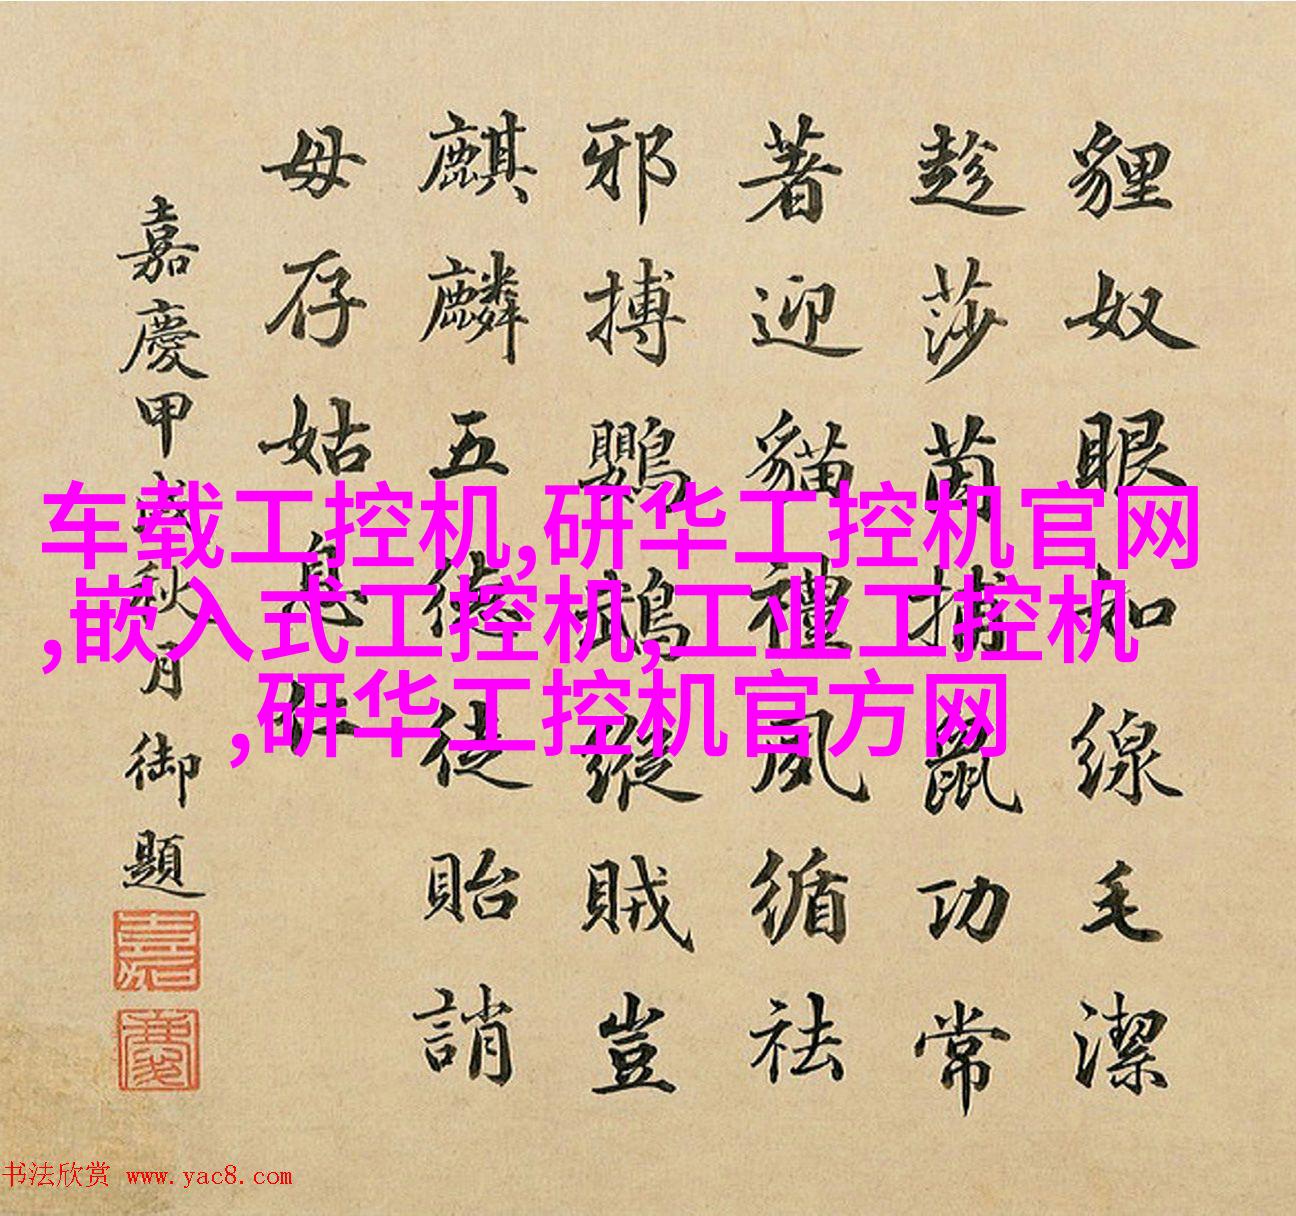 貍奴眼如線毛潔
趁莎茵捕鼠功常
著迎貓禮夙循祛
邪搏鸚鵡縱賊豈
麒麟五德徒貽誚
毋存姑息仁
嘉慶甲戌秋月御題
嘉
慶
车载工控机,研华工控机官网
,嵌入式工控机,工业工控机
,研华工控机官方网
书法欣赏 www.yac8.com